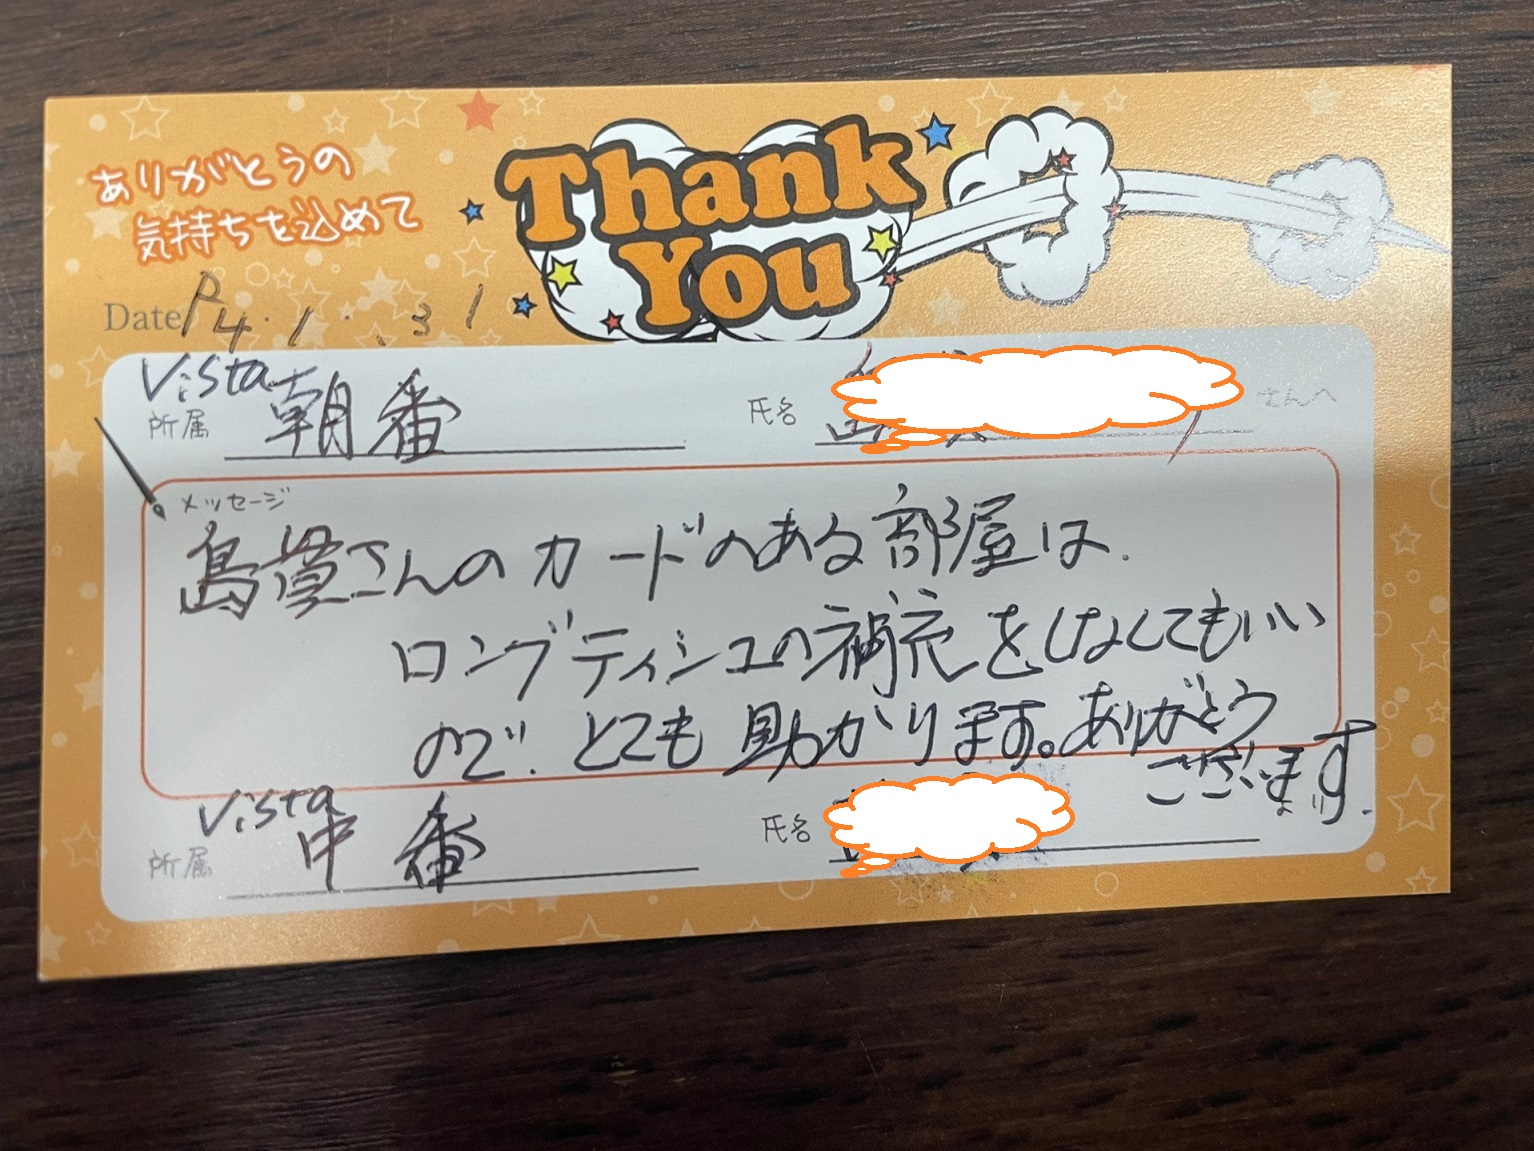 ありがとうの
気持ちを込めて
Thank
You
Date R4.1.31
Vista
所属 朝番
氏名 さんへ
メッセージ
島貫さんのカードのある部屋は、
ロングティシュの補充をしなくてもいい
ので、とても助かります。ありがとう
ございます。
Vista
所属 中番
氏名